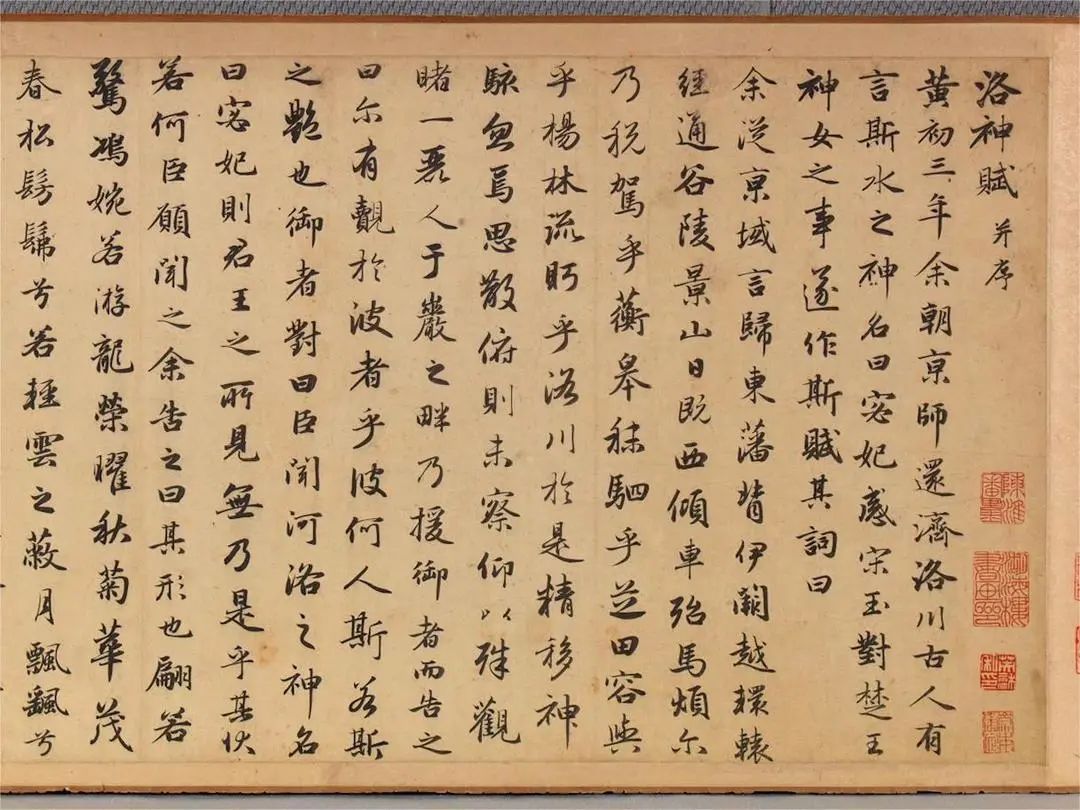 洛神賦 并序
黃初三年余朝京師還濟洛川古人有
言斯水之神名曰宓妃感宋玉對楚王
神女之事遂作斯賦其詞曰
余從京域言歸東藩背伊闕越轘轅
經通谷陵景山日既西傾車殆馬煩尔
乃税駕乎蘅皋秣駟乎芝田容與
乎楊林流眄乎洛川於是精移神
駭忽焉思散俯則未察仰以殊觀
睹一麗人于巖之畔乃援御者而告之
曰尔有覿於彼者乎彼何人斯若斯
之艷也御者對曰臣聞河洛之神名
曰宓妃則君王之所見無乃是乎其狀
若何臣願聞之余告之曰其形也翩若
驚鴻婉若游龍榮曜秋菊華茂
春松髣髴兮若輕雲之蔽月飄飖兮